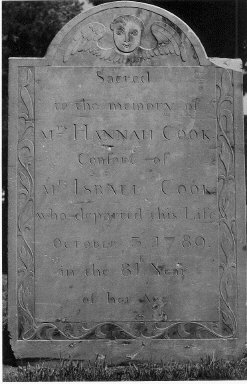 Sacred
to the memory of
Mrs HANNAH COOK
Consort of
Mr ISRAEL COOK
who departed this Life
October 5, 1789
in the 81st Year
of her Age